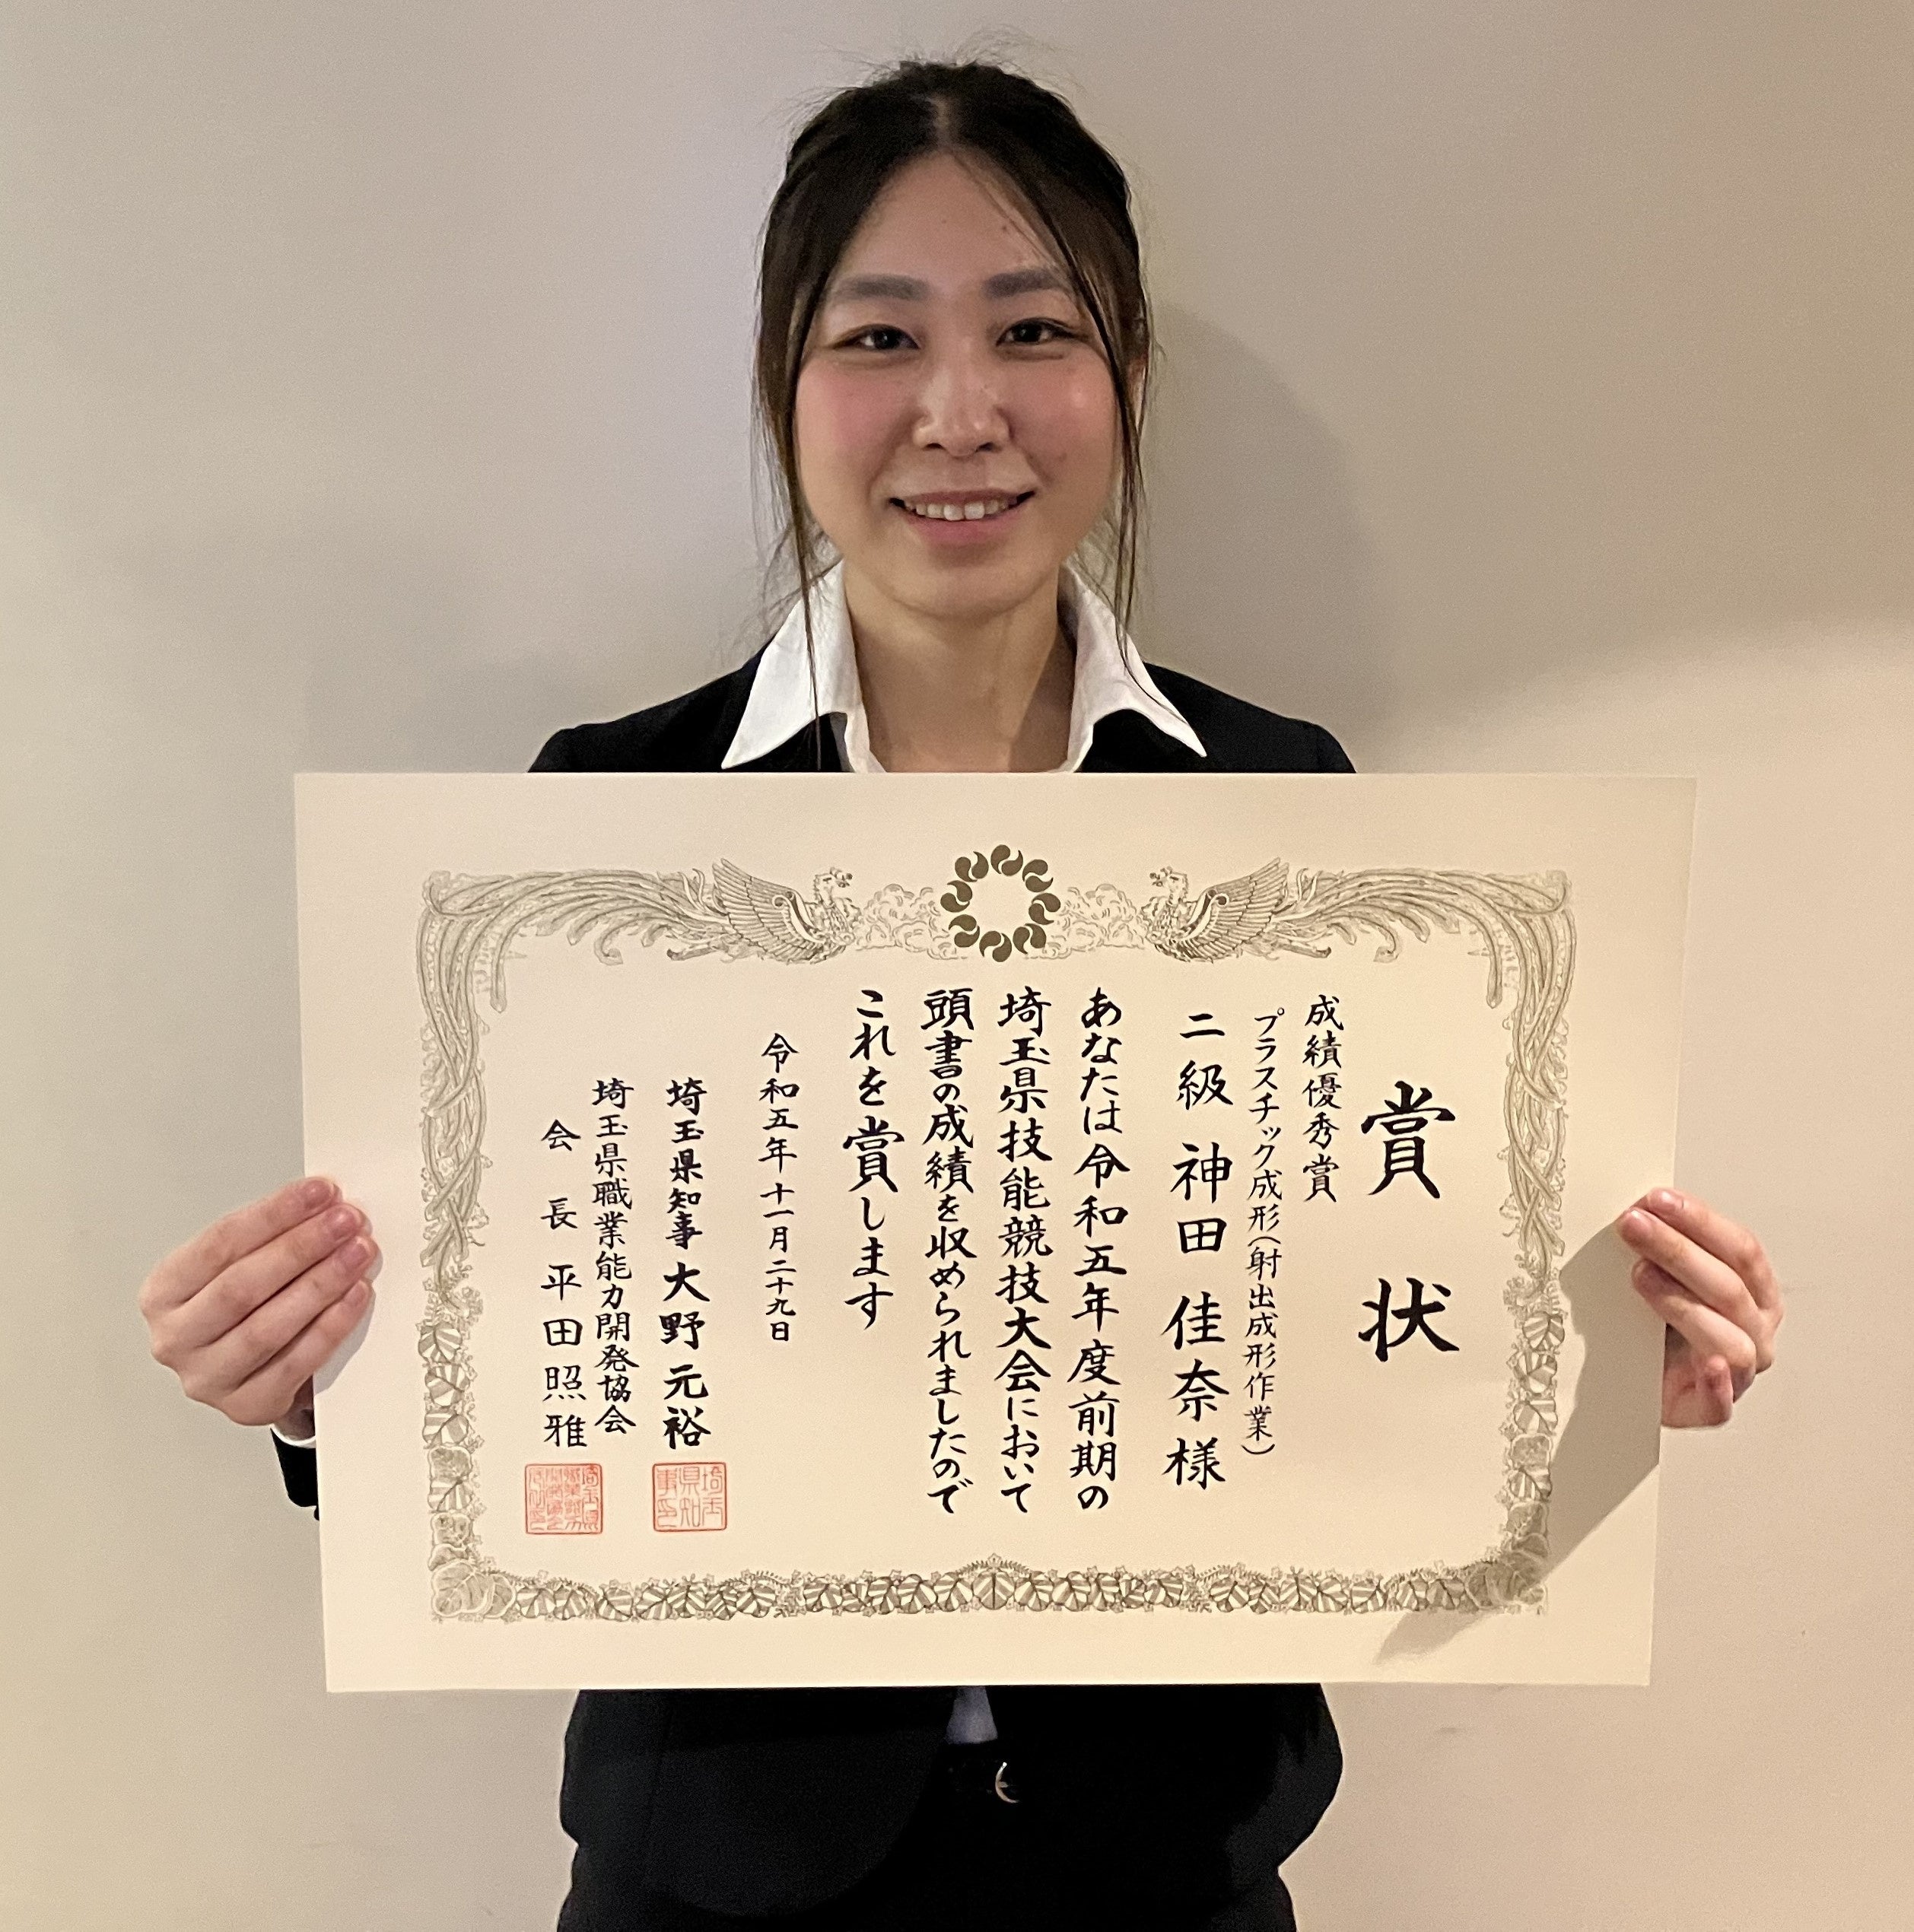 賞状
成績優秀賞
プラスチック成形(射出成形作業)
二級 神田 佳奈 様
あなたは令和五年度前期の
埼玉県技能競技大会において
頭書の成績を収められましたので
これを賞します
令和五年十一月二十九日
埼玉県知事 大野元裕
埼玉県職業能力開発協会
会長 平田照雅
埼玉県知事印